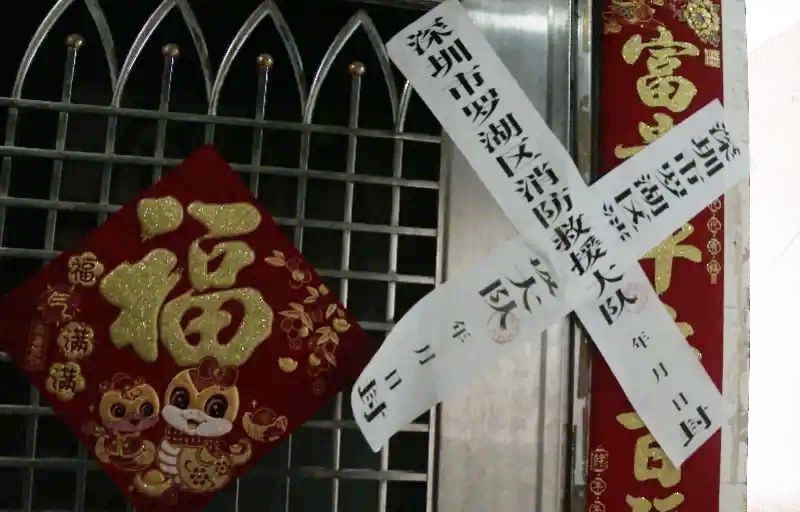 福
福
气
满
满
深圳市罗湖区消防救援大队
年 月 日 封
深圳市罗湖区消
大队
年 月 日 封
富
平
百